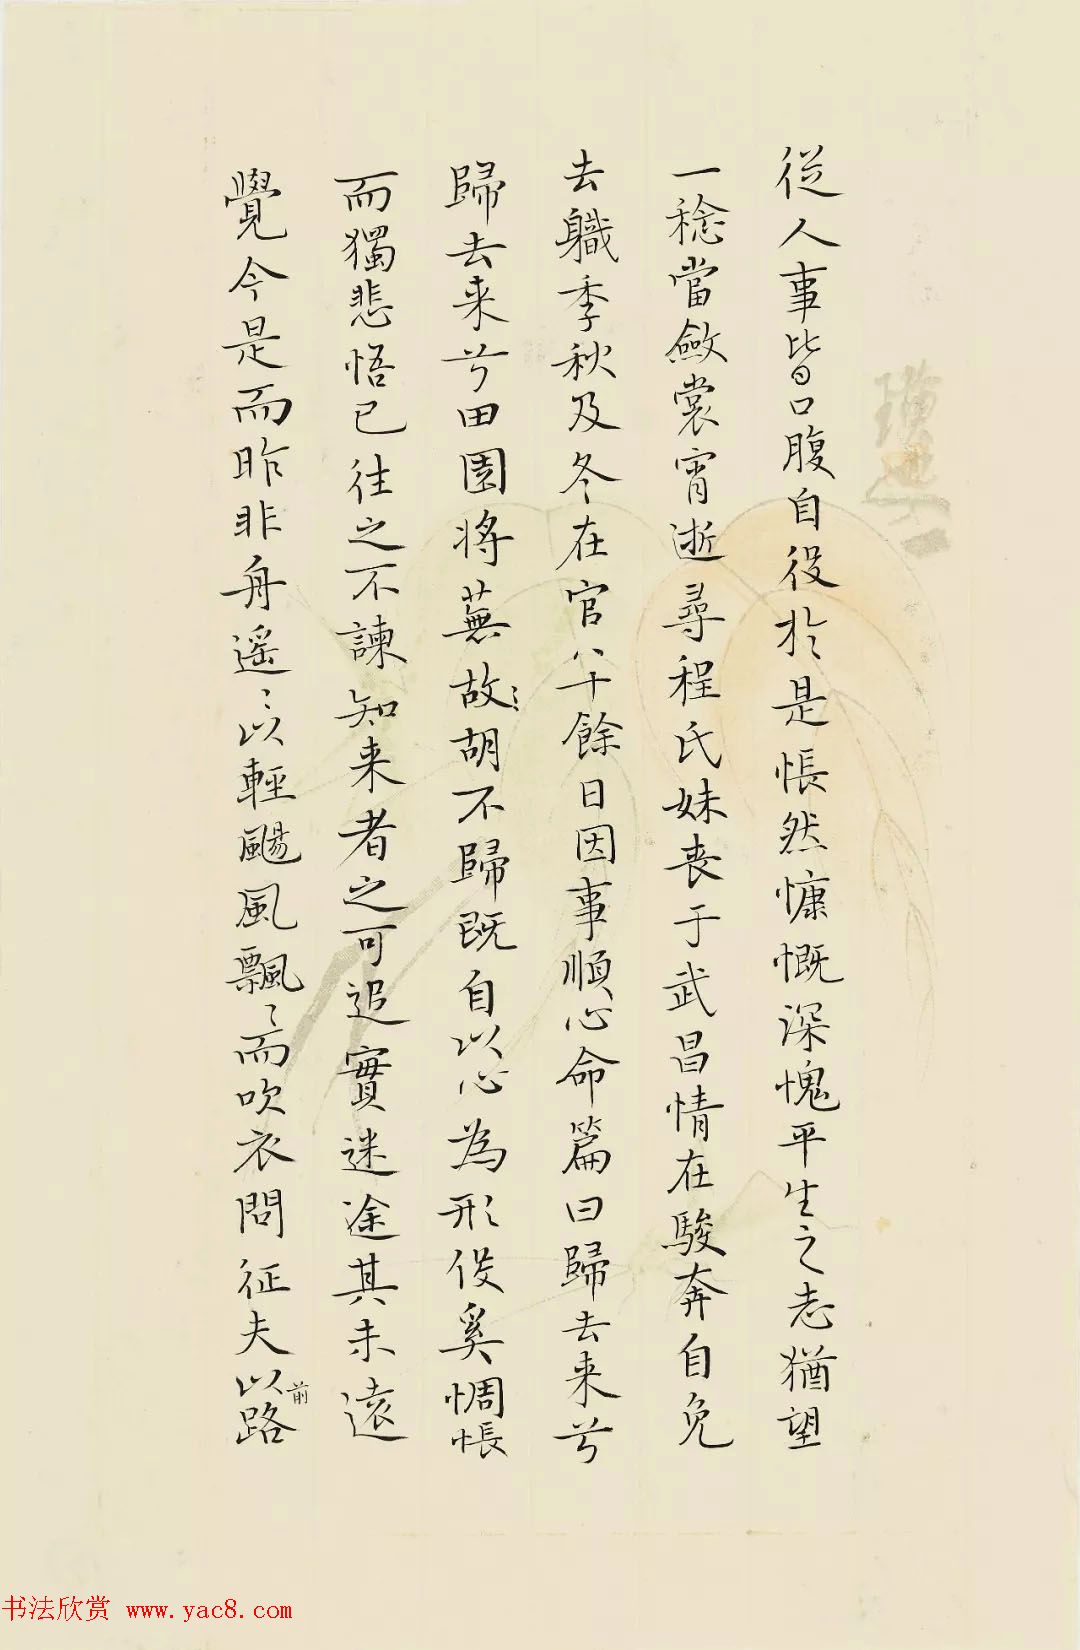 從人事皆口腹自役於是悵然慷慨深愧平生之志猶望
一稔當斂裳宵逝尋程氏妹喪于武昌情在駿奔自免
去軄季秋及冬在官八十餘日因事順心命篇曰歸去来兮
歸去来兮田園將蕪故胡不歸既自以心為形役奚惆悵
而獨悲悟已往之不諫知来者之可追實迷途其未遠
覺今是而昨非舟遥〻以輕颺風飄〻而吹衣問征夫以前路
书法欣赏 www.yac8.com